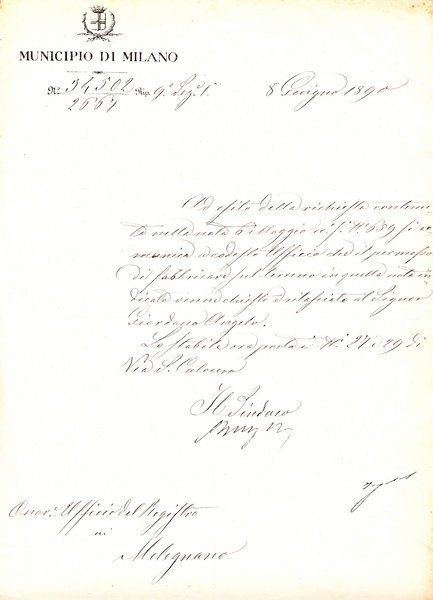 MUNICIPIO DI MILANO
N.° 34502 / 2667 Rip. 9.a Sez. 1.a
8 Giugno 1890
Ad esito della richiesta contenu-
ta nella nota 6 Maggio N.° 639 si co-
munica a codesto Ufficio che il permesso
di fabbricare sul terreno in quella nota in-
dicato venne chiesto e rilasciato al Signor
Giordana Angelo.
Lo stabile ora porta i N.i 27 e 29 di
Via S. Calocero
Il Sindaco
Onor.e Ufficio del Registro
in
Melegnano